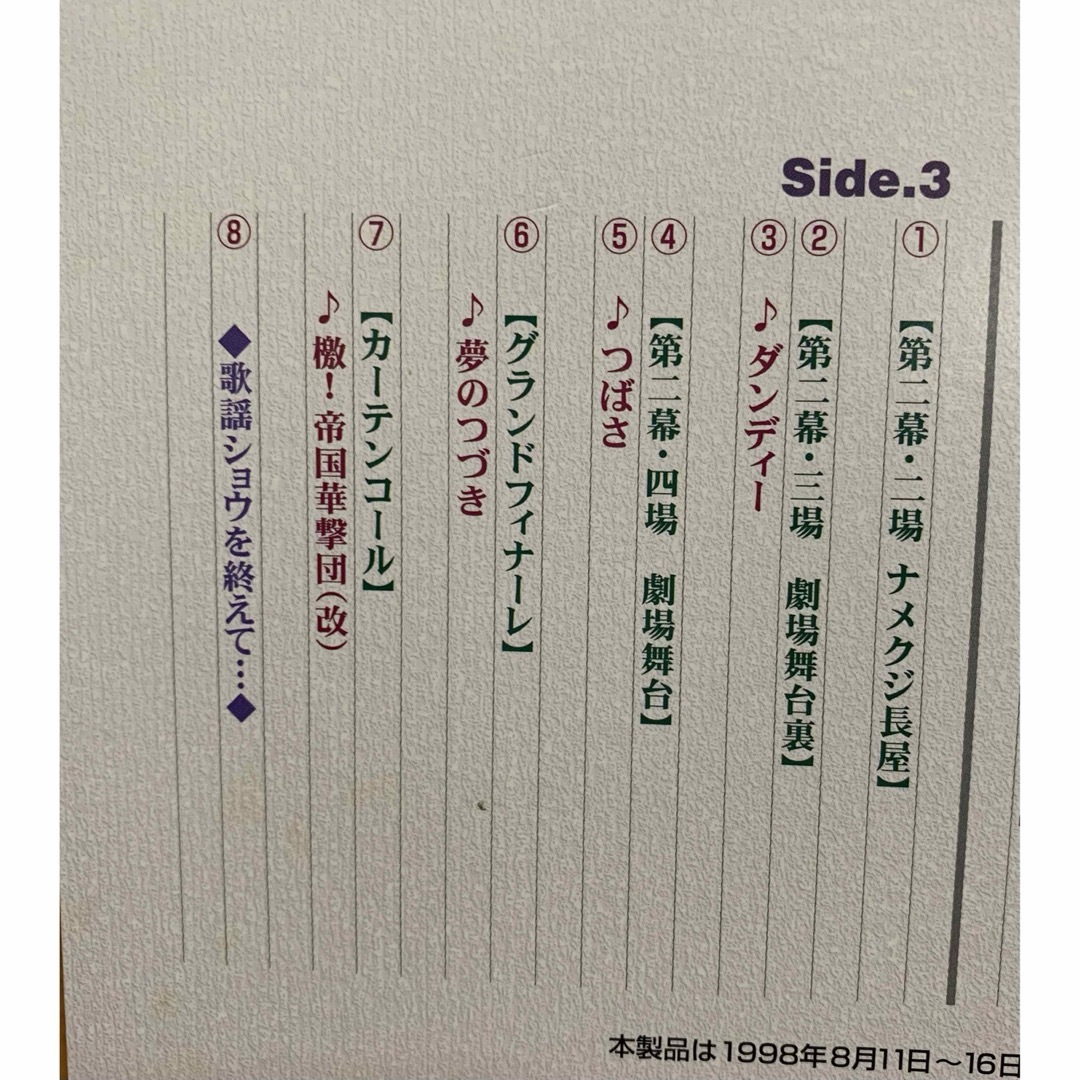 Side.3
① 【第二幕・二場 ナメクジ長屋】
② 【第二幕・三場 劇場舞台裏】
③ ♪ダンディー
④ 【第二幕・四場 劇場舞台】
⑤ ♪つばさ
⑥ 【グランドフィナーレ】
♪夢のつづき
⑦ 【カーテンコール】
♪檄！帝国華撃団（改）
⑧ ◆歌謡ショウを終えて…◆
本製品は1998年8月11日～16日